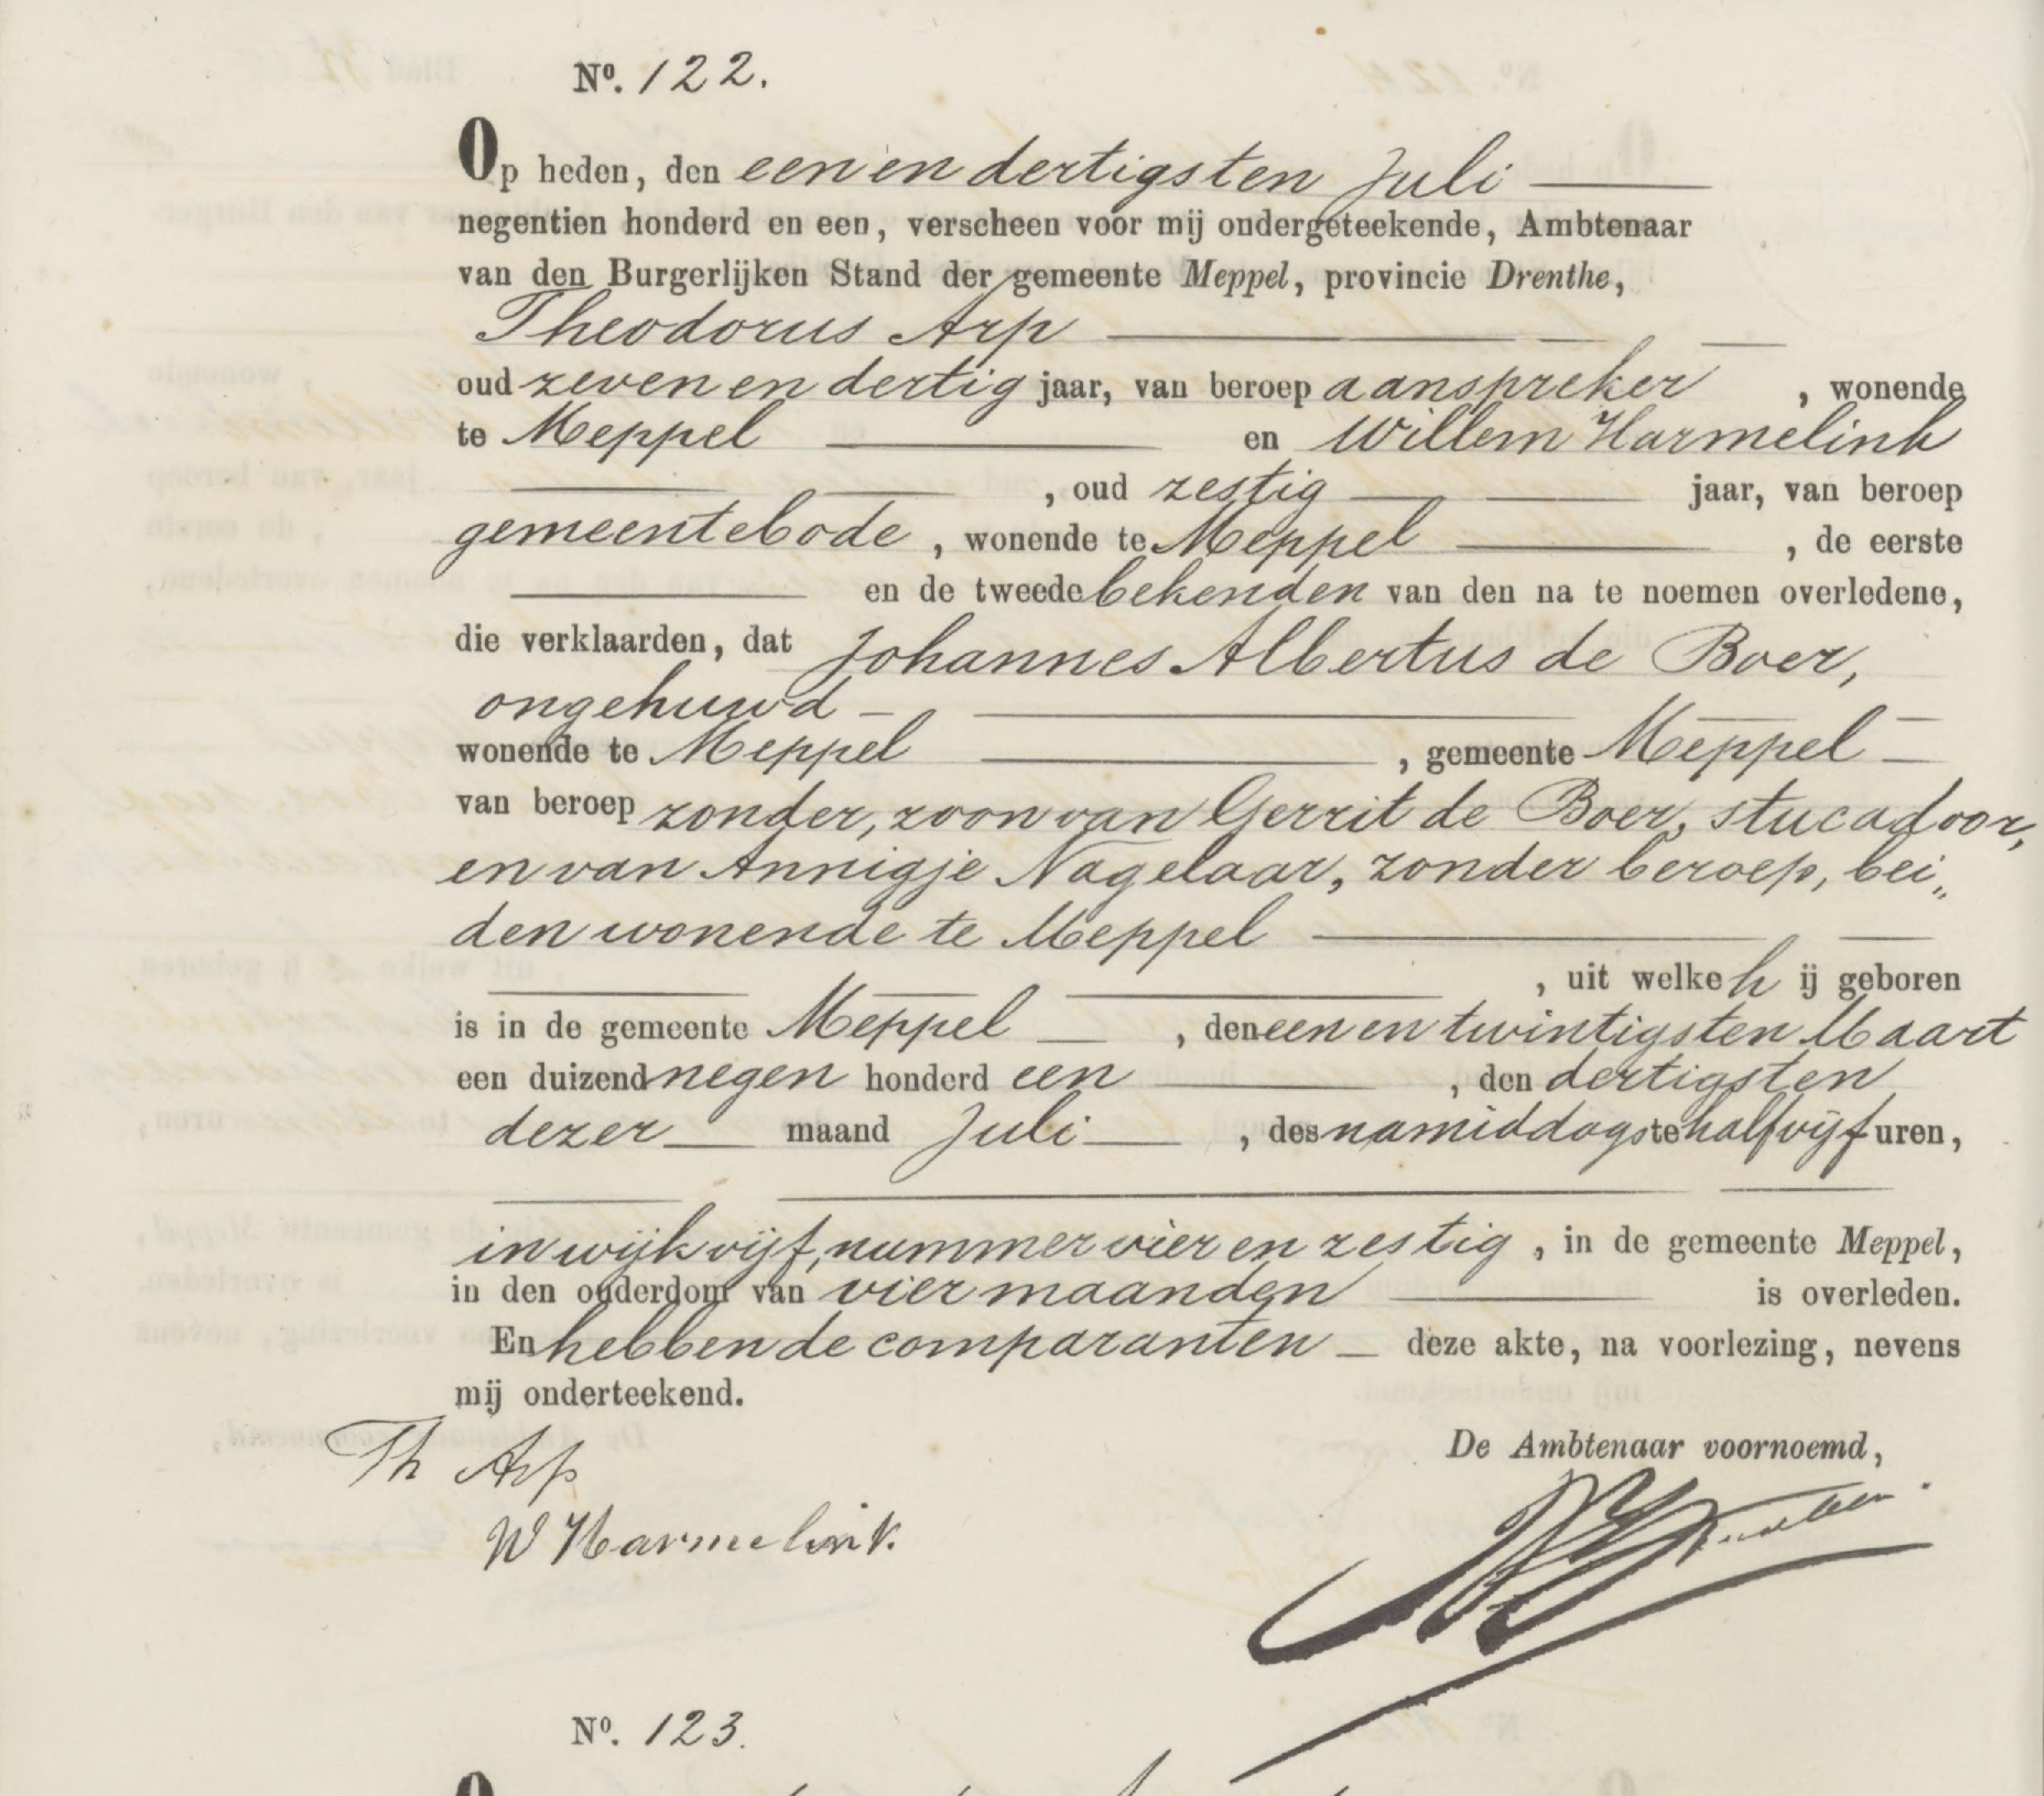 Nº. 122.
Op heden, den een en dertigsten Juli
negentien honderd en een, verscheen voor mij ondergeteekende, Ambtenaar
van den Burgerlijken Stand der gemeente Meppel, provincie Drenthe,
Theodorus Arp
oud zeven en dertig jaar, van beroep aanspreker, wonende
te Meppel en Willem Harmelink
, oud zestig jaar, van beroep
gemeentebode, wonende te Meppel, de eerste
en de tweede bekenden van den na te noemen overledene,
die verklaarden, dat Johannes Albertus de Boer,
ongehuwd
wonende te Meppel, gemeente Meppel
van beroep zonder, zoon van Gerrit de Boer, stucadoor,
en van Annigje Nagelaar, zonder beroep, bei„
den wonende te Meppel
, uit welke hij geboren
is in de gemeente Meppel, den een en twintigsten Maart
een duizend negen honderd een, den dertigsten
dezer maand Juli, des namiddags te half vijf uren,
in wijk vijf, nummer vier en zestig, in de gemeente Meppel,
in den ouderdom van vier maanden is overleden.
En hebben de comparanten deze akte, na voorlezing, nevens
mij onderteekend.
De Ambtenaar voornoemd,
Th Arp
W Harmelink.
Nº. 123.